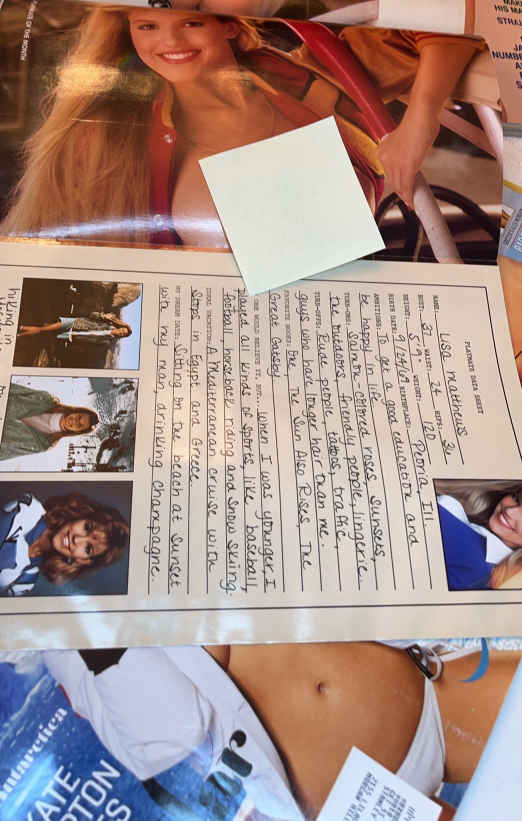 PLAYMATE DATA SHEET
NAME: Lisa Matthews
BUST: 37 WAIST: 24 HIPS: 34
HEIGHT: 5'9" WEIGHT: 120
BIRTH DATE: BIRTHPLACE: Peoria Ill.
AMBITIONS: To get a good education and
be happy in life.
TURN-ONS: Salmon-colored roses, sunsets,
the outdoors, friendly people, lingerie.
TURN-OFFS: Rude people, tattoos, traffic,
guys who have longer hair than me.
FAVORITE BOOKS: One, The Sun Also Rises, The
Great Gatsby
NO ONE WOULD BELIEVE IT, BUT... when I was younger I
played all kinds of sports, like baseball,
football, horseback riding and snow skiing.
IDEAL VACATION: A Mediterranean cruise with
stops in Egypt and Greece.
MY DREAM DATE: Sitting on the beach at sunset
with my man, drinking champagne.
hiking in
OF THE MONTH
HIS MA
STRA
NUMBE
Antarctica
KATE
UPTON